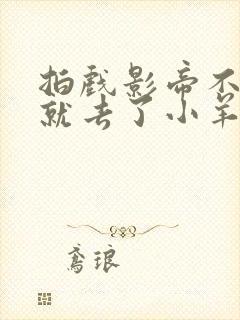 拍戏影帝不
就去了小羊
鸢琅